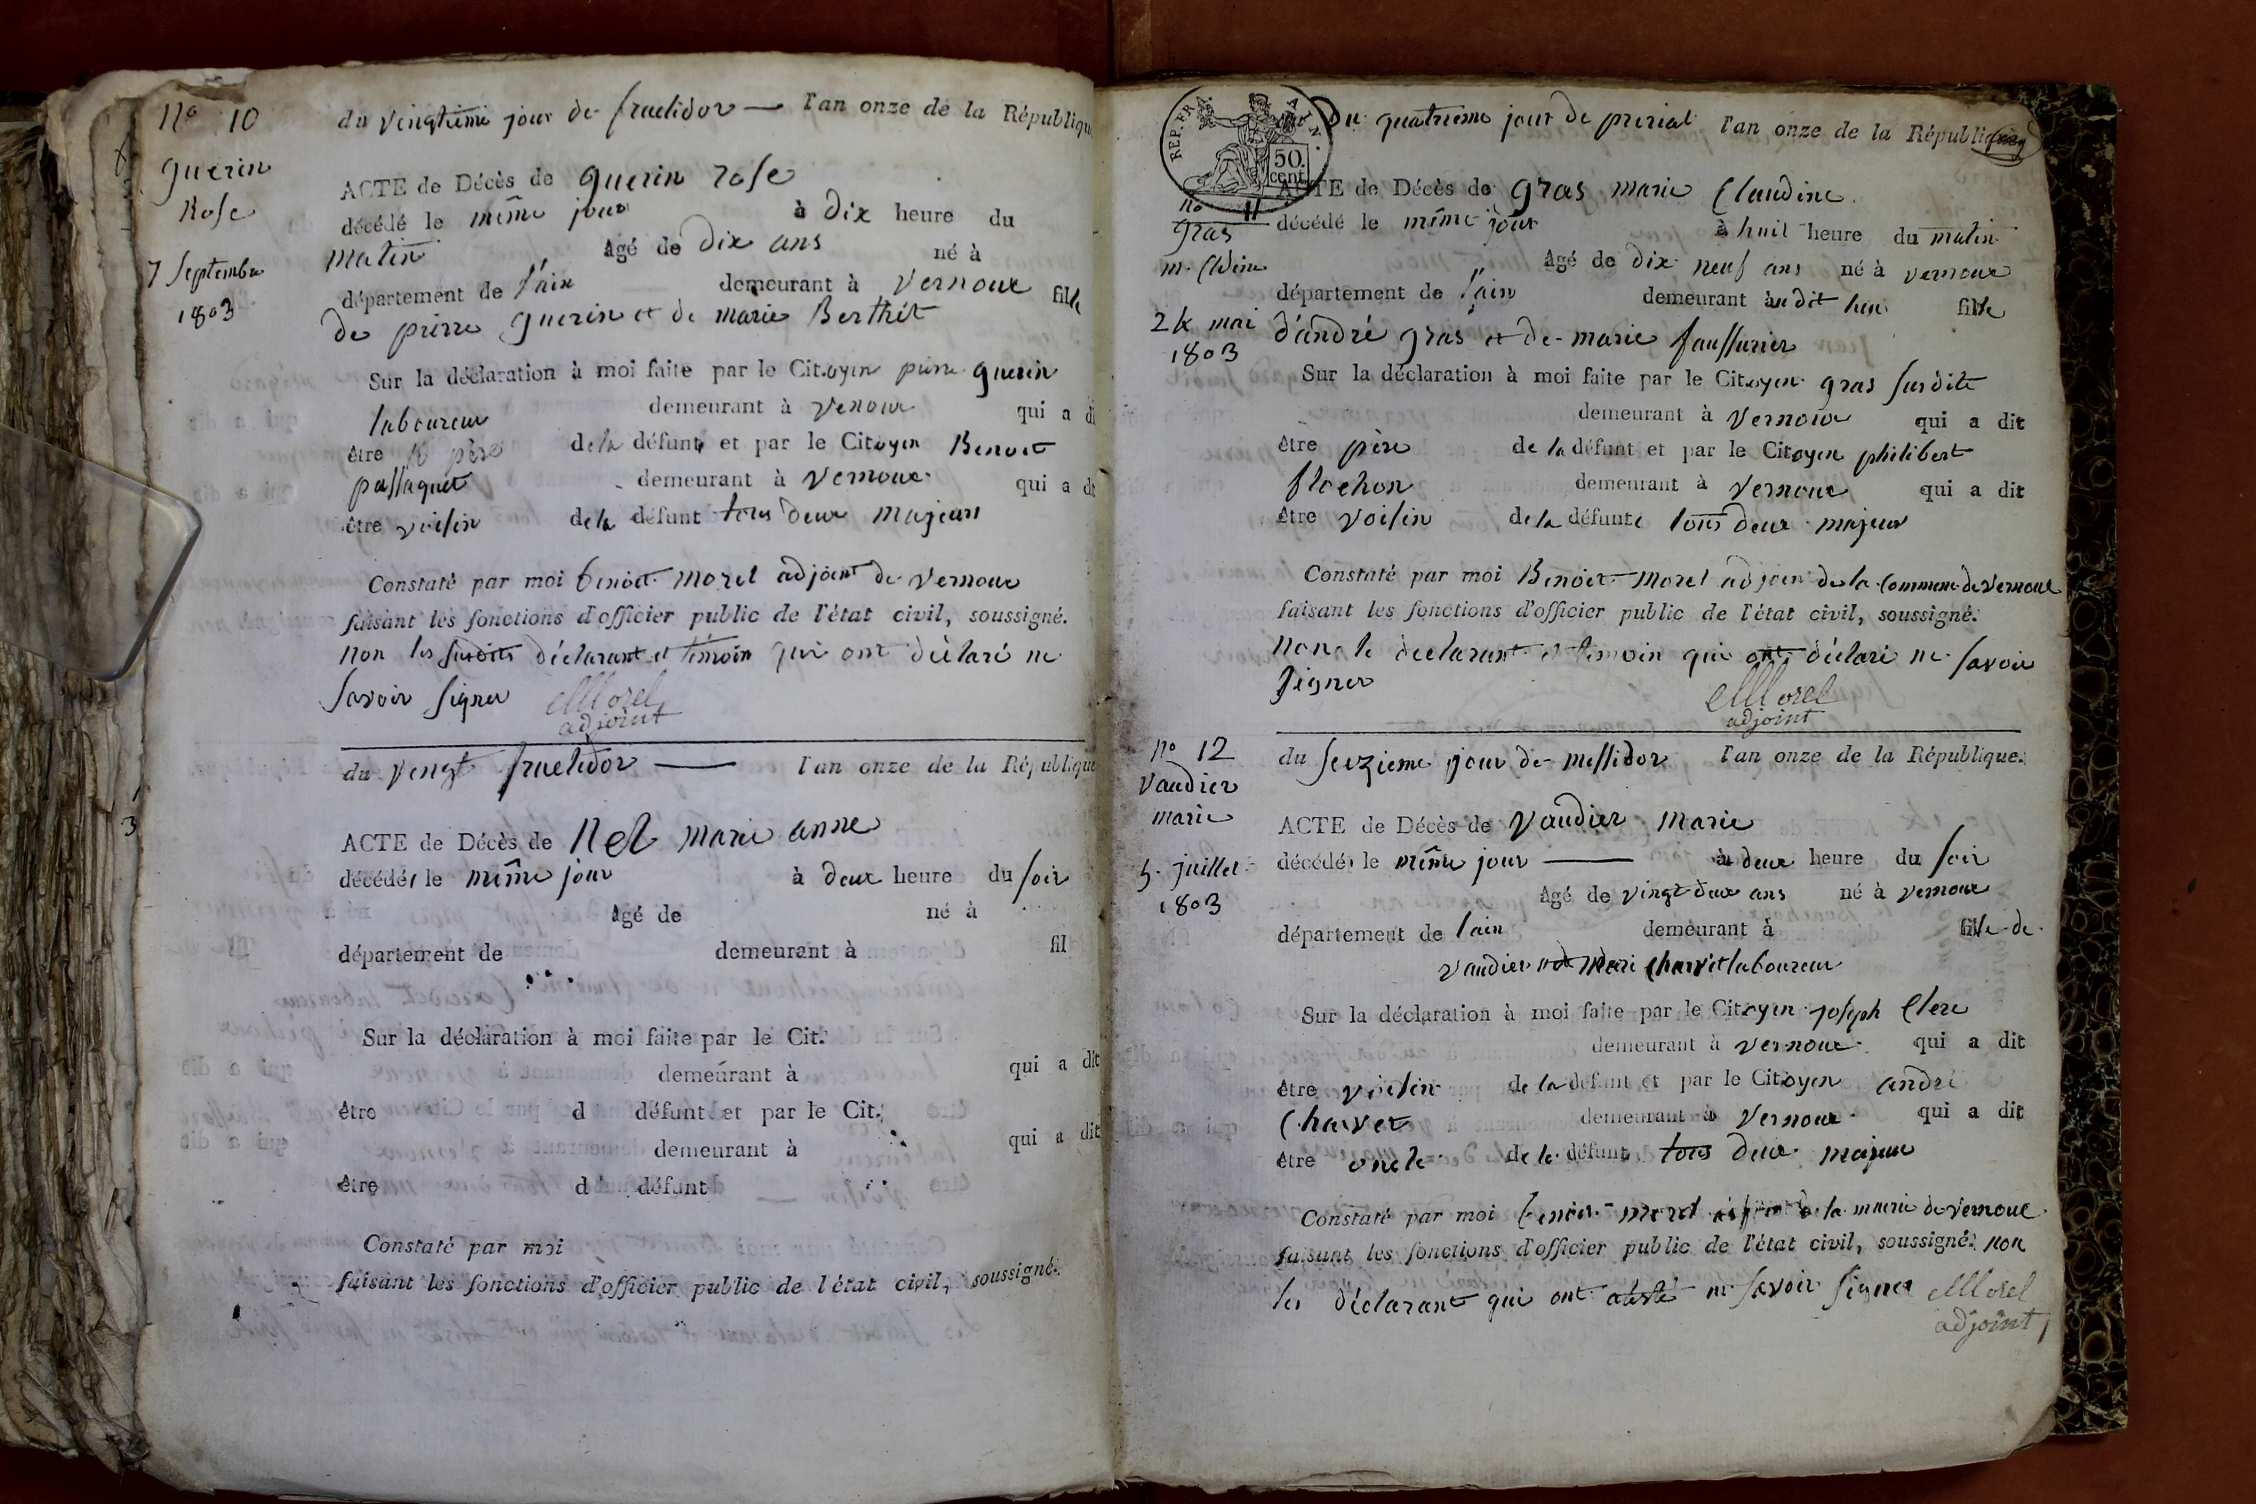 n° 10
Guerin
Rose
7 Septembre
1803
du vingtieme jour de fructidor — l'an onze de la République
ACTE de Décès de Guerin rose
décédé le même jour à dix heure du
matin âgé de dix ans né à
département de l'ain demeurant à Vernoux fille
de pierre Guerin et de marie Berthet
Sur la déclaration à moi faite par le Citoyen pierre Guerin
laboureur demeurant à Venoux qui a di
être le père de la défunt et par le Citoyen Benoit
passaquet demeurant à Vernoux qui a di
être voisin de la défunt tous deux majeurs
Constaté par moi benoit morel adjoint de Vernoux
faisant les fonctions d'officier public de l'état civil, soussigné.
non les susdits déclarant et témoin qui ont déclaré ne
Savoir signer Morel
adjoint
du vingt fructidor — l'an onze de la République
3
ACTE de Décès de marie anne
décédé le même jour à deux heure du soir
âgé de né à
département de demeurant à fil
Sur la déclaration à moi faite par le Cit.
demeurant à qui a dit
être d défunt et par le Cit.
demeurant à qui a dit
être d défunt
Constaté par moi
faisant les fonctions d'officier public de l'état civil, soussigné.
REP. FRA. 50. cent.
Du quatrieme jour de prerial l'an onze de la République
n° 11
Gras
m. Cldine
24 mai
1803
ACTE de Décès de Gras marie Claudine
décédé le même jour à huit heure du matin
âgé de dix neuf ans né à vernoux
département de l'ain demeurant audit lieu fille
d'andré Gras et de marie faussurier
Sur la déclaration à moi faite par le Citoyen gras susdite
demeurant à Vernoux qui a dit
être père de la défunt et par le Citoyen philibert
flochon demeurant à Vernoux qui a dit
être voisin de la défunte tous deux majeur
Constaté par moi Benoit morel adjoin de la Commune de Vernoux
faisant les fonctions d'officier public de l'état civil, soussigné.
non le declarant et temoin qui ont déclaré ne savoir
signer Morel
adjoint
n° 12
Vaudier
marie
5 juillet
1803
du seizieme jour de messidor l'an onze de la République.
ACTE de Décès de Vaudier marie
décédé le même jour — à deux heure du soir
âgé de vingt deux ans né à vernoux
département de lain demeurant à fille de
vaudier charvet laboureur
Sur la déclaration à moi faite par le Citoyen joseph Clerc
demeurant à vernoux qui a dit
être voisin de la défunt et par le Citoyen andré
Charvet demeurant à Vernoux qui a dit
être oncle de la défunt tous deux majeur
Constaté par moi benoit morel adjoint de la mairie de vernoux
faisant les fonctions d'officier public de l'état civil, soussigné. non
les déclarant qui ont ne savoir signer Morel
adjoint